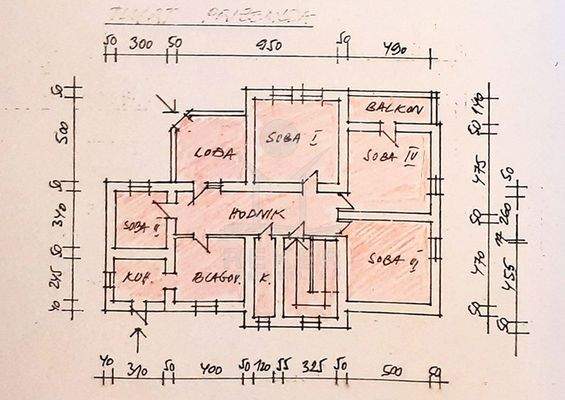 50 300 50 950 50 490
BALKON
SOBA I
SOBA IV
LOĐA
HODNIK
SOBA II
KUH.
BLAGOV.
K.
50
500
50
340
50
245
40
50 140
50
475
50
470
50
50
260
455
50
40 310 50 400 50 120 55 325 50 500 50